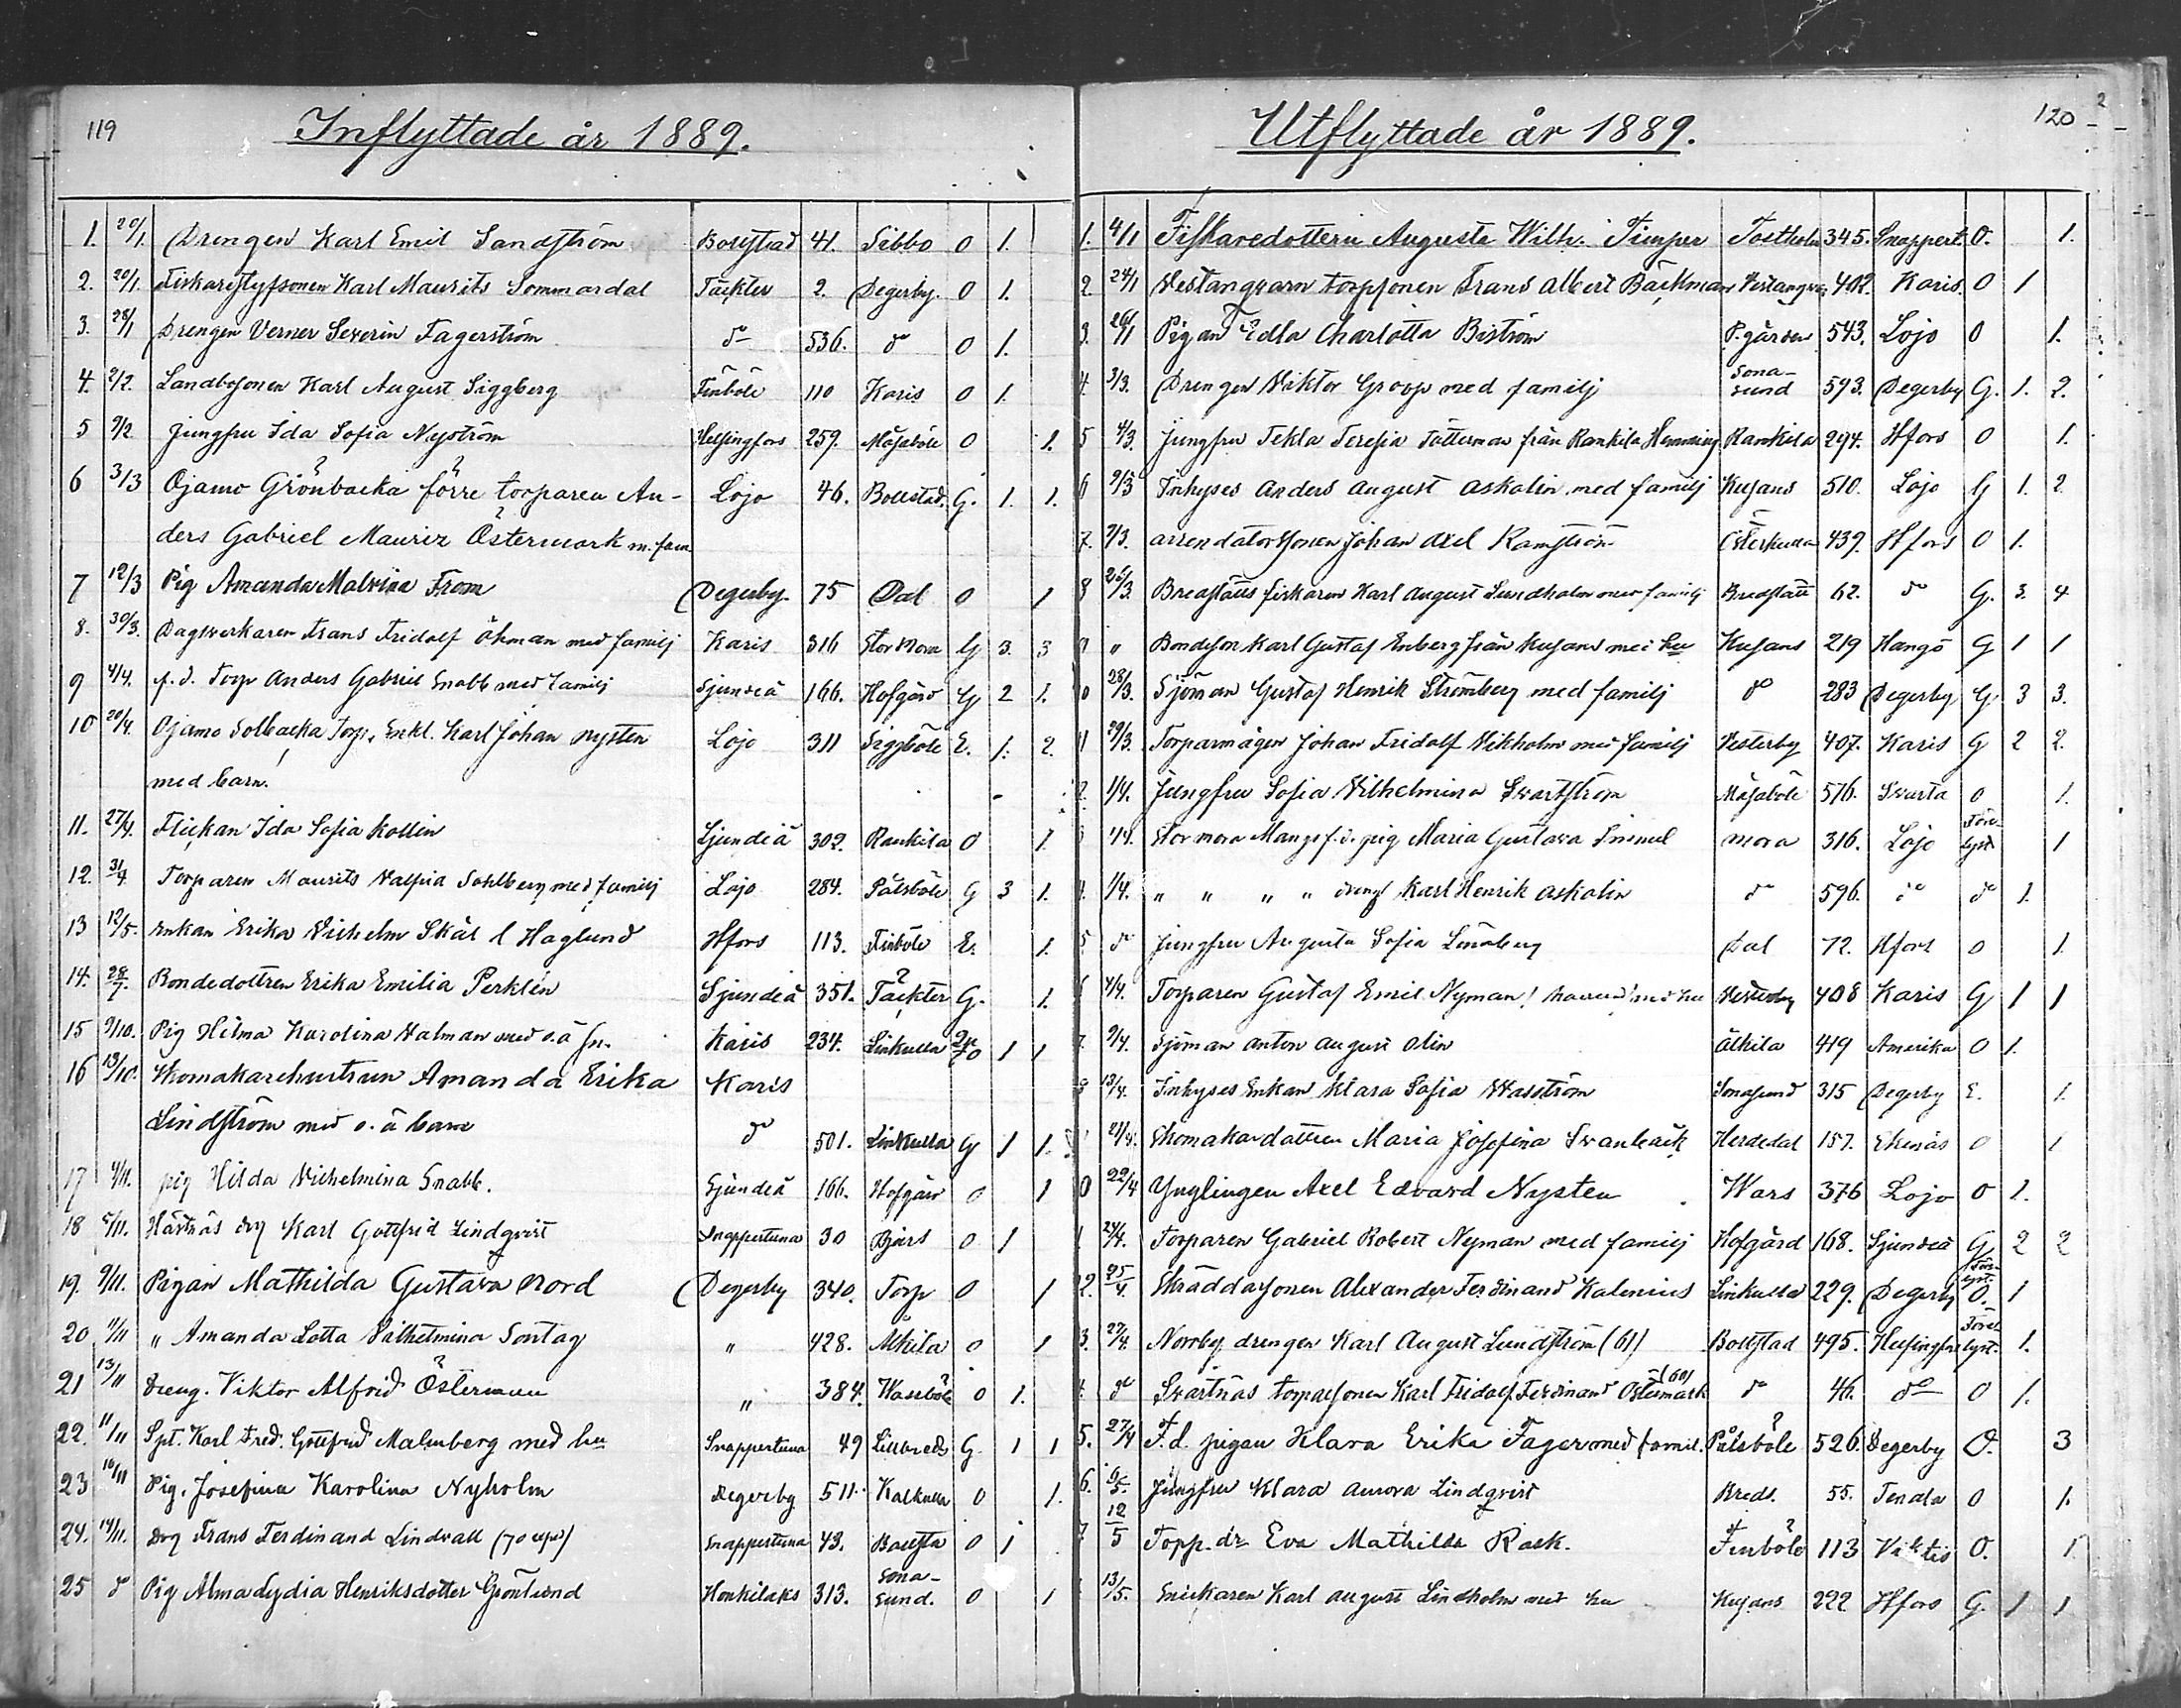 119
Inflyttade år 1889.
1. 20/1. Drengen Karl Emil Sandström Bollstad 41. Sibbo O 1.
2. 20/1. Fiskarestyfsonen Karl Maurits Sommardal Täckter 2. Degerby. O 1.
3. 28/1 Drengen Verner Severin Fagerström do 536. do O 1.
4. 2/2. Landbosonen Karl August Siggberg Finböle 110 Karis O 1.
5 9/2 Jungfru Ida Sofia Nyström Helsingfors 259. Måsaböle O 1.
6 3/3 Ojamo Grönbacka förre torparen An- Lojo 46. Bollstad. G. 1. 1.
ders Gabriel Mauriz Östermark m. fam
7 12/3 Pig Amanda Malvina From Degerby. 75 Dal O 1
8. 30/3. Dagsverkaren Frans Fridolf Öhman med familj Karis 316 Stor Mora G 3. 3
9 4/4. f.d. Torp Anders Gabriel Snabb med familj Sjundeå 166. Hofgård G 2 1.
10 20/4. Ojamo Solbacka Torp. Enkl. Karl Johan Nysten Lojo 311 Siggböle E. 1. 2.
med barn.
11. 27/4. Flickan Ida Sofia Kollin Sjundeå 302. Rankila O 1.
12. 31/4 Torparen Maurits Valfrid Sohlberg med familj Lojo 284. Pålsböle G 3 1.
13 12/5. Enkan Erika Vilhelm Skål l Haglund Hfors 113. Finböle E. 1.
14. 28/7. Bondedottren Erika Emilia Perklén Sjundeå 351. Täckter G. 1.
15 9/10. Pig Hilma Karolina Valman med o.ä sn. Karis 234. Linkulla 1 1
16 13/10. Skomakarehustrun Amanda Erika Karis
Lindström med o. ä barn do 501. Linkulla G 1 1.
17 4/11. pig Hilda Vilhelmina Snabb. Sjundeå 166. Hofgård O 1
18 5/11. drg Karl Gottfrid Lindqvist Snappertuna 30 Bjärs O 1
19. 9/11. Pigan Mathilda Gustava Nord Degerby 340. Torp O 1
20 11/11 " Amanda Lotta Vilhelmina Sontag " 428. Älkila O 1
21 13/11 Dreng. Viktor Alfrid Österman " 384. Wassböle O 1.
22. 11/11 Spt. Karl Fred. Gottfrid Malmberg med hu Snappertuna 49 Lillbreds G. 1 1
23 16/11 Pig. Josefina Karolina Nyholm Degerby 511. Kalkulla O 1.
24. 14/11. Drg Frans Ferdinand Lindvall Snappertuna 43. Båssta O 1
25 d Pig Alma Lydia Henriksdotter Grönlund Honkilaks 313. Sona-
sund. O 1
120
2
Utflyttade år 1889.
1. 4/1 Fiskaredottern Augusta Wilh. Timper Tostholm 345. Snappert. O. 1.
2. 24/1 Vestanqvarn torpsonen Frans Albert Bäckman 402. Karis. O 1
3. 26/1 Pigan Edla Charlotta Biström P.gården 543. Lojo O 1.
4. 3/3. Drengen Viktor Groop med familj Sona-
sund 593. Degerby G. 1. 2.
5 4/3. Jungfru Tekla Teresia Tötterman från Rankila Hemming Rankila 294. Hfors O 1.
6 9/3 Inhyses Anders August Askolin med familj Kusans 510. Lojo G 1. 2.
7. 7/3. arrendatorssonen Johan Axel Ramström Österkulla 439. Hfors O 1.
8 26/3. Bredslätts fiskaren Karl August Lundholm med familj Bredslätt 62. do G. 3. 4
9 " Bondeson Karl Gustaf Enberg från Kusans med hu Kusans 219 Hangö G 1 1
0 28/3. Sjöman Gustaf Henrik Strömberg med familj do 283 Degerby G. 3 3.
1 29/3. Torparmågen Johan Fridolf Vikholm med familj Vesterby 407. Karis G 2 2.
2. 1/4. Jungfru Sofia Vilhelmina Svartström Måsaböle 576. Svarta O 1.
3 1/4. Stor mora Mangs f.d. pig Maria Gustava Simmel Mora 316. Lojo 1
4. 1/4. " " " " dreng Karl Henrik Askolin do 596. do do 1.
5 do Jungfru Augusta Sofia Lindberg Dal 72. Hfors O 1.
6 4/4. Torparen Gustaf Emil Nyman med hu Vesterby 408 Karis G 1 1
7. 9/4. Sjöman Anton August Olin Älkila 419 Amerika O 1.
8 13/4. Inhyses Enkan Klara Sofia Wasström Sonasund 315 Degerby E. 1.
21/4. Skomakardottren Maria Josefina Svanbäck Herdedal 157. Ekenäs O 1
0 22/4 Ynglingen Axel Edvard Nysten Wars 376 Lojo O 1.
1 24/4. Torparen Gabriel Robert Nyman med familj Hofgård 168. Sjundeå G 2 2
2. 25/4. Skräddarsonen Alexander Ferdinand Kalenius Linkulla 229. Degerby O. 1
3. 27/4. Norrby drengen Karl August Lundström (61) Bollstad 495. Helsingfors 1.
4. do Svartnäs torparsonen Karl Fridolf Ferdinand Östermark (60) do 46. do O 1.
5. 27/4 F.d. pigan Klara Erika Fager med famil. Pålsböle 526. Degerby O. 3
6. 6/5. Jungfru Klara Aurora Lindqvist Breds. 55. Tenala O 1.
7 12/5 Topp. dr Eva Mathilda Rask. Finböle 113 Viktis O. 1
13/5. Snickaren Karl August Lindholm med hu Kusans 222 Hfors G. 1 1